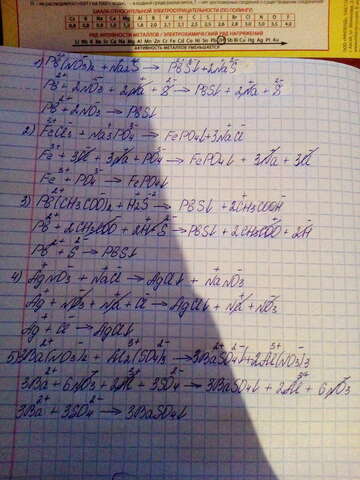 ШКАЛА ОТНОСИТЕЛЬНОЙ ЭЛЕКТРООТРИЦАТЕЛЬНОСТИ ПО ПОЛИНГУ
РЯД АКТИВНОСТИ МЕТАЛЛОВ / ЭЛЕКТРОХИМИЧЕСКИЙ РЯД НАПРЯЖЕНИЙ
АКТИВНОСТЬ МЕТАЛЛОВ УМЕНЬШАЕТСЯ
1) Pb(NO3)2 + Na2S → PbS↓ + 2NaS
Pb²⁺ + 2NO3⁻ + 2Na⁺ + S²⁻ → PbS↓ + 2Na⁺ + S²⁻
Pb²⁺ + 2NO3⁻ → PbS↓
2) FeCl3 + Na3PO4 → FePO4↓ + 3NaCl
Fe³⁺ + 3Cl⁻ + 3Na⁺ + PO4³⁻ → FePO4↓ + 3Na⁺ + 3Cl⁻
Fe³⁺ + PO4³⁻ → FePO4↓
3) Pb(CH3COO)2 + H2S → PbS↓ + 2CH3COOH
Pb²⁺ + 2CH3COO⁻ + 2H⁺ + S²⁻ → PbS↓ + 2CH3COO⁻ + 2H⁺
Pb²⁺ + S²⁻ → PbS↓
4) AgNO3 + NaCl → AgCl↓ + NaNO3
Ag⁺ + NO3⁻ + Na⁺ + Cl⁻ → AgCl↓ + Na⁺ + NO3⁻
Ag⁺ + Cl⁻ → AgCl↓
5) 3Ba(NO3)2 + Al2(SO4)3 → 3BaSO4↓ + 2Al(NO3)3
3Ba²⁺ + 6NO3⁻ + 2Al³⁺ + 3SO4²⁻ → 3BaSO4↓ + 2Al³⁺ + 6NO3⁻
3Ba²⁺ + 3SO4²⁻ → 3BaSO4↓